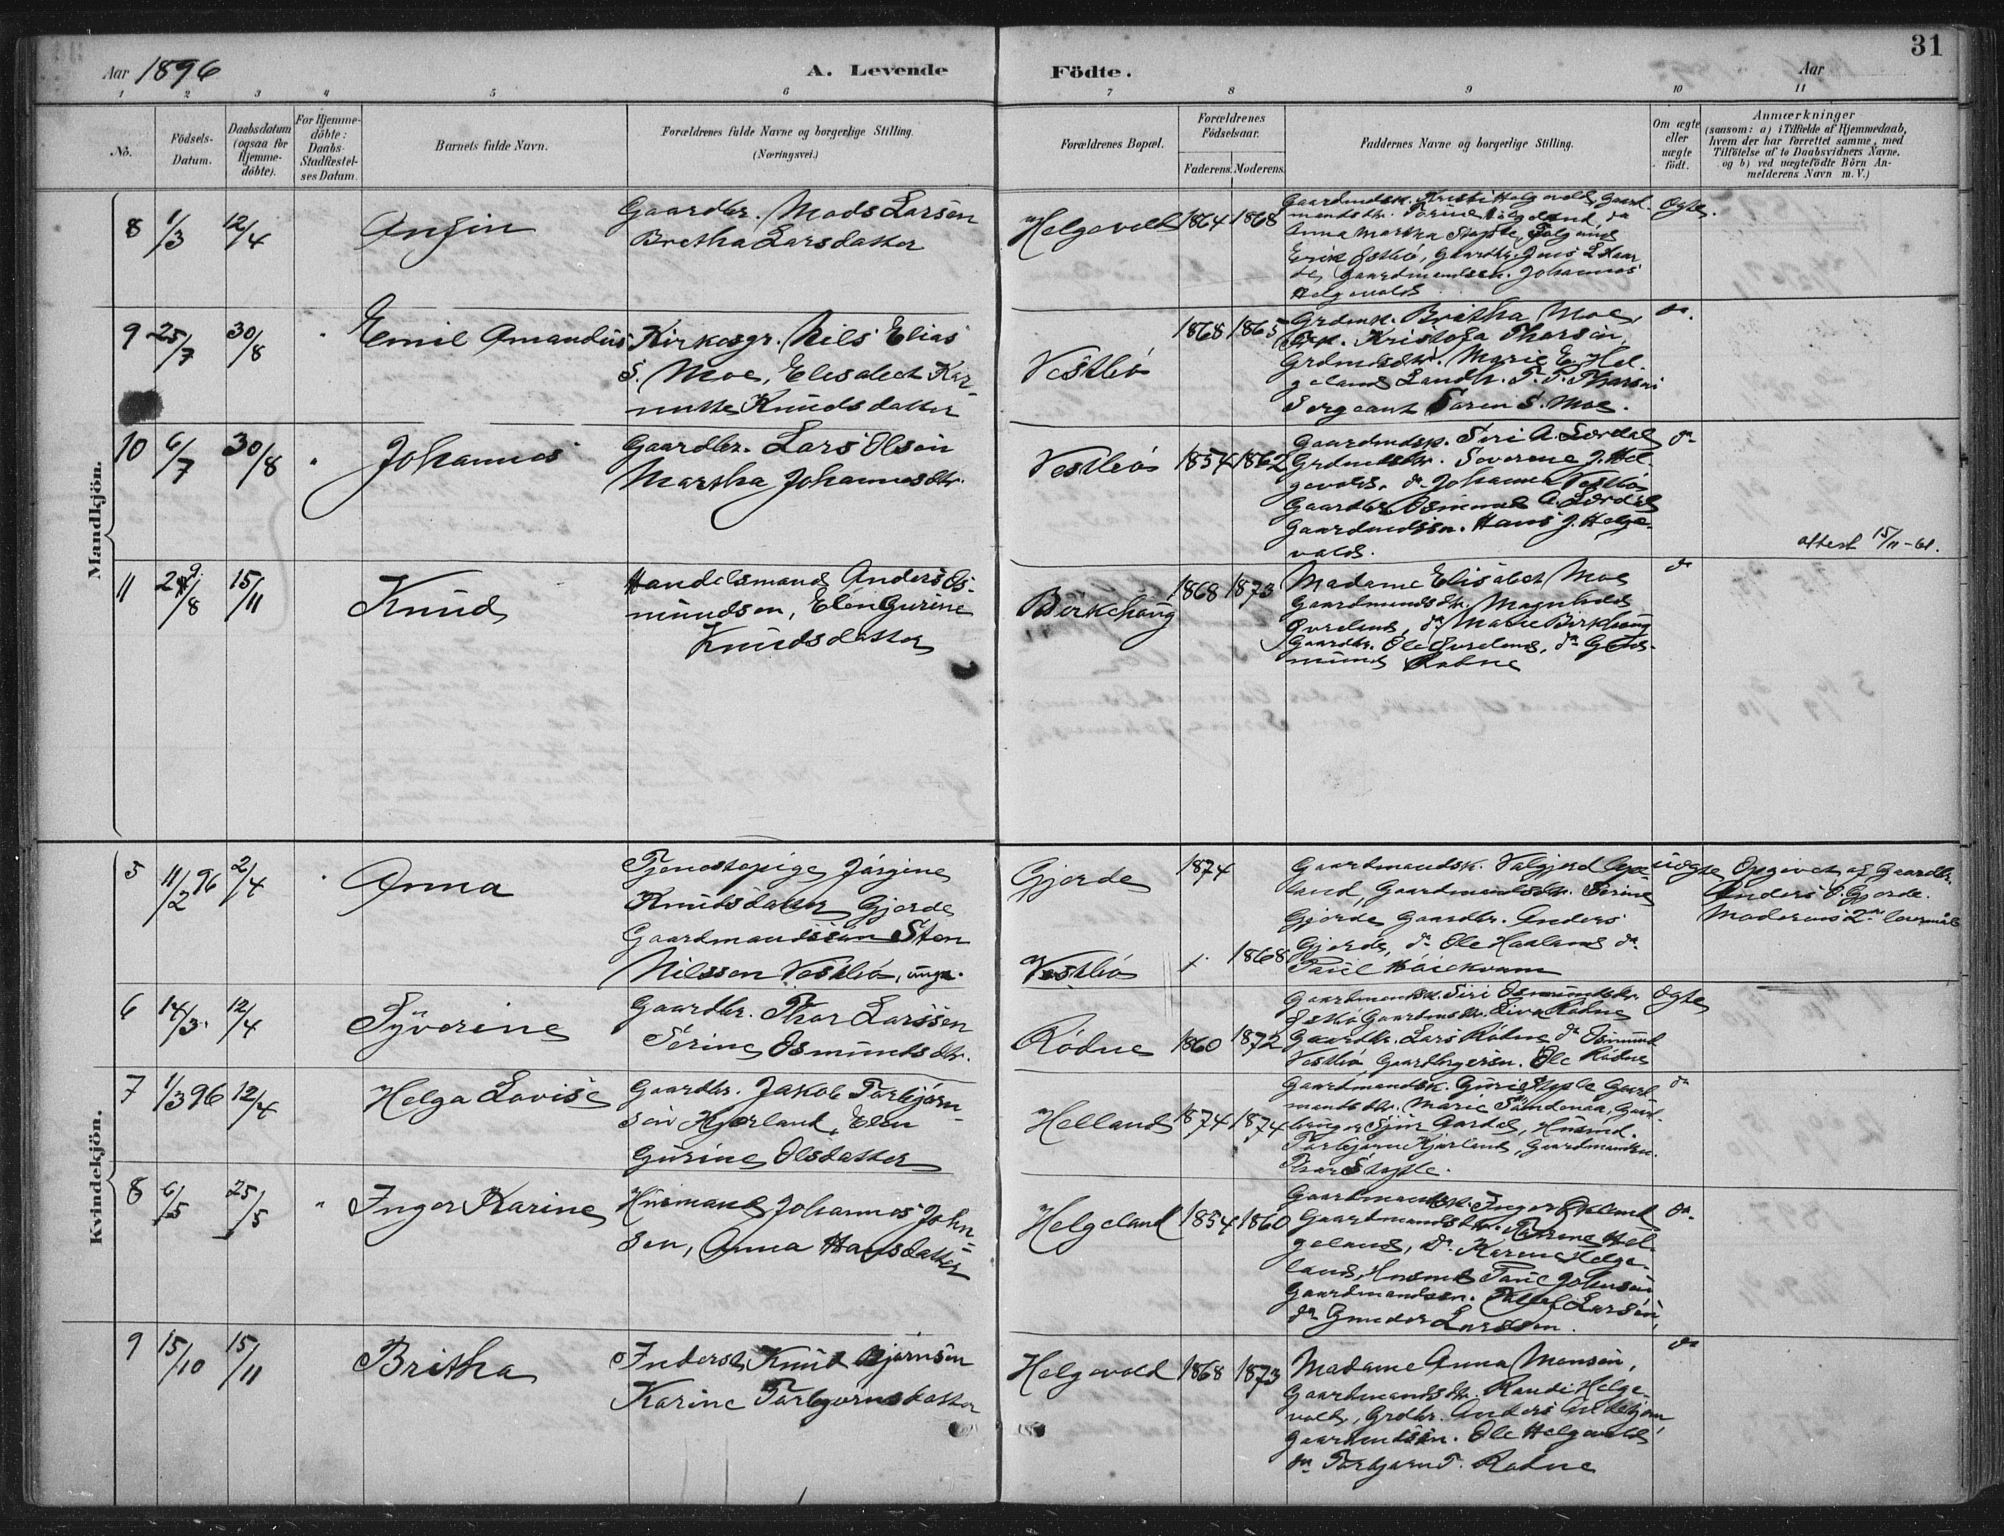 31
Aar 1896
A. Levende Födte.
Aar
1 2 3 4 5 6 7 8 9 10 11
No.
Födsels-Datum.
Daabsdatum (ogsaa for Hjemme-döbte).
For Hjemme-döbte: Daabs-Stadfæstel-ses Datum.
Barnets fulde Navn.
Forældrenes fulde Navne og borgerlige Stilling.
(Næringsvei.)
Forældrenes Bopæl.
Forældrenes Födselsaar.
Faderens. Moderens.
Faddernes Navne og borgerlige Stilling.
Om ægte eller uægte födt.
Anmærkninger
(saasom: a) i Tilfælde af Hjemmedaab, hvem der har forrettet samme, med Tilföielse af to Daabsvidners Navne, og b) ved uægtefödte Börn An-melderens Navn m. V.)
Mandkjön.
8 1/3 12/4
Gaardbr. Mads Larsen
Bretha Larsdatter
Helgevold 1864 1868
Ægte.
Anna Martha
Johannes
Helgevold
9 25/7 30/8 Emil Amandus
Kirkesgr. Nils Elias
S. Moe, Elisabet Kar-
nutte Knudsdatter
Vestbø 1868 1865
Grdmk. Britha Moe,
Kristofa Thorsen,
Grdmdsdtr. Marie E. Hel-
geland Landh. T. T. Thorsen
Sergeant Soren S. Moe.
do.
10 6/7 30/8 Johannes
Gaardbr. Lars Olsen
Martha Johannesdtr.
Vestbø 1854 1862
Gaardmdsk. Siri A. Lordal
Grdmdsdtr. Severine J. Hel-
gevold. do Johanna Vestbø
Gaardbr. Osmund A. Lordal
Gaardmdssn. Hans J. Helge-
vold.
do
attest 15/11-61.
11 15/11 Knud
Handelsmand Anders Os-
mundsen, Elen Gurine
Knudsdatter
Birkehaug 1868 1873
Madame Elisabet Moe
Gaardmandsdtr. Magnhild
Øvreland, do Marie Birkhaug
Gaardbr. Ole Øvreland, do
Rødne
do
Kvindekjön.
5 11/2 96 2/4 Anna
Tjenestepige Jørgine
Knudsdatter Gjerde
Gaardmandssøn Sten
Nilssen Vestbø, ungk.
Gjerde 1874
Vestbø 1868
Gaardmandsk. Valgjerd
land, Gaardmandsdtr. Serine
Gjerde Gaardbr. Anders
Gjerde, do Ole Haaland do
Uægte
Opgivet af Gaardbr.
Anders Gjerde.
Moderens 2det leiermaal
6 14/3 12/4 Syverine
Gaardbr. Thor Larssen
Serine Osmundsdtr.
Rødne 1860 1872
Gaardmandsk. Siri Osmundsdtr.
Gaardbr. Lars Rødne do Osmund
Vestbø, Ole Rødne
Ægte
7 1/3 96 12/4 Helga Lovise
Gaardbr. Jakob Torbjørn-
sen Hjorland, Elen
Gurine Olsdatter
Helland 1874 1874
Gaardmandsk. Guri Stople Gaard-
mandsdtr. Marie
Torbjørn Hjorland, Gaardmandssn.
Thor Stople.
do
8 6/5 25/5 Inger Karine
Husmand Johannes John-
sen, Anna Hansdatter
Helgeland 1854 1860
Gaardmandsk. Inger
Gaardmandsdtr. Hel-
geland, do. Karine Helge-
land, Husmd
Gaardmandssn. Larsen,
do Gunder Larssen.
do.
9 15/10 15/11 Britha
Inderst Knud Bjørnsen
Karine Torbjørnsdatter
Helgevold 1868 1873
Madame Anna Monsen,
Gaardmandsdtr. Randi Helge-
vold, Grdbr. Anders
Gaardmdssn. Ole Helgevold
do Torbjørn T. Rødne
do